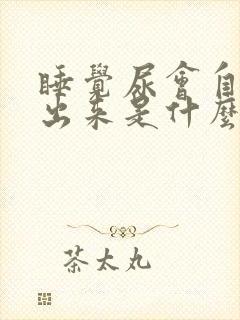 睡覺尿會自
出來是什麼
茶太丸